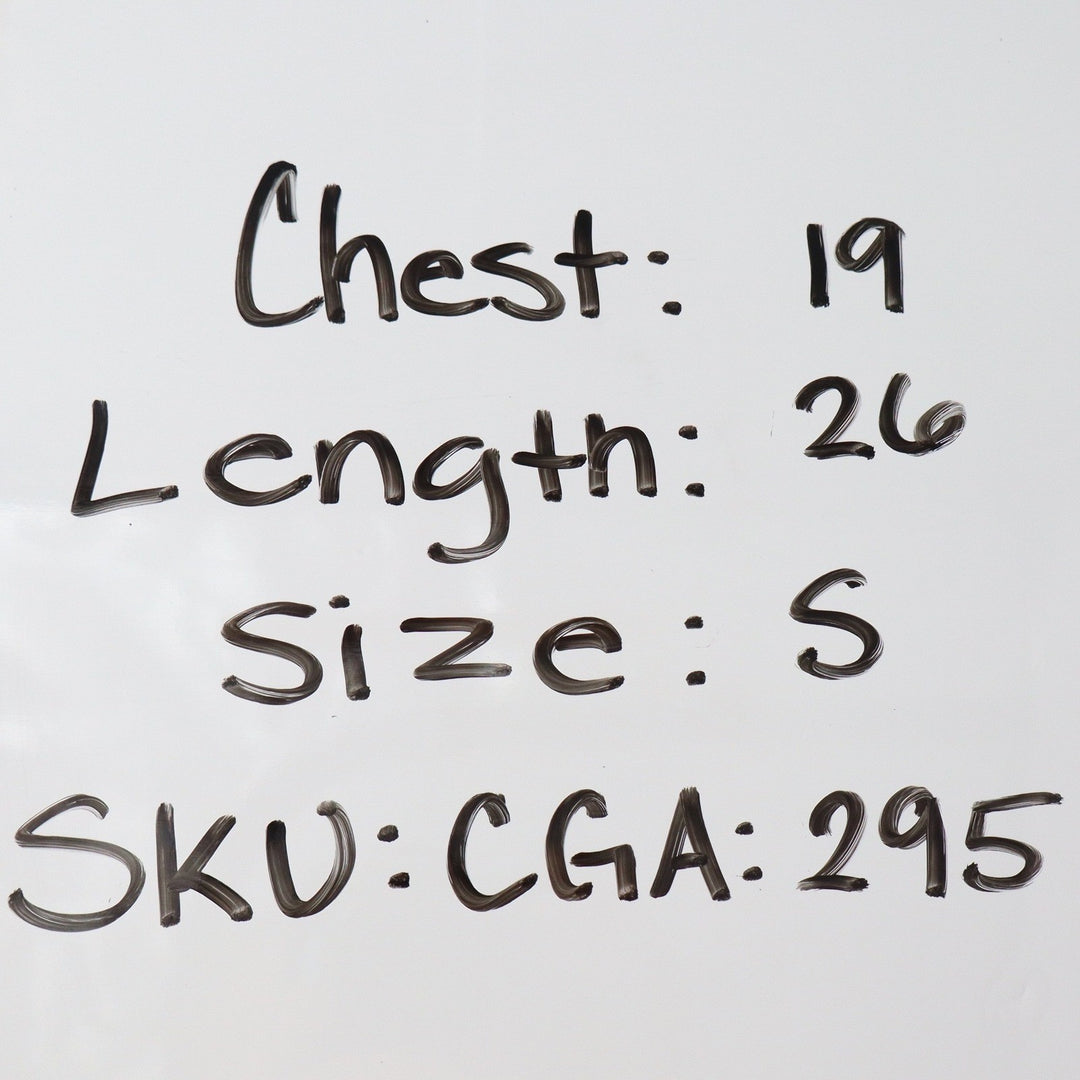 Chest: 19
Length: 26
Size: S
SKU: CGA: 295